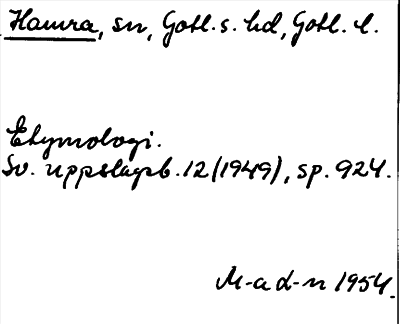 Hamra, sn, Gotl. s. hd, Gotl. l.
Etymologi.
Sv. uppslagsb. 12 (1949), sp. 924.
M-a d-n 1954.